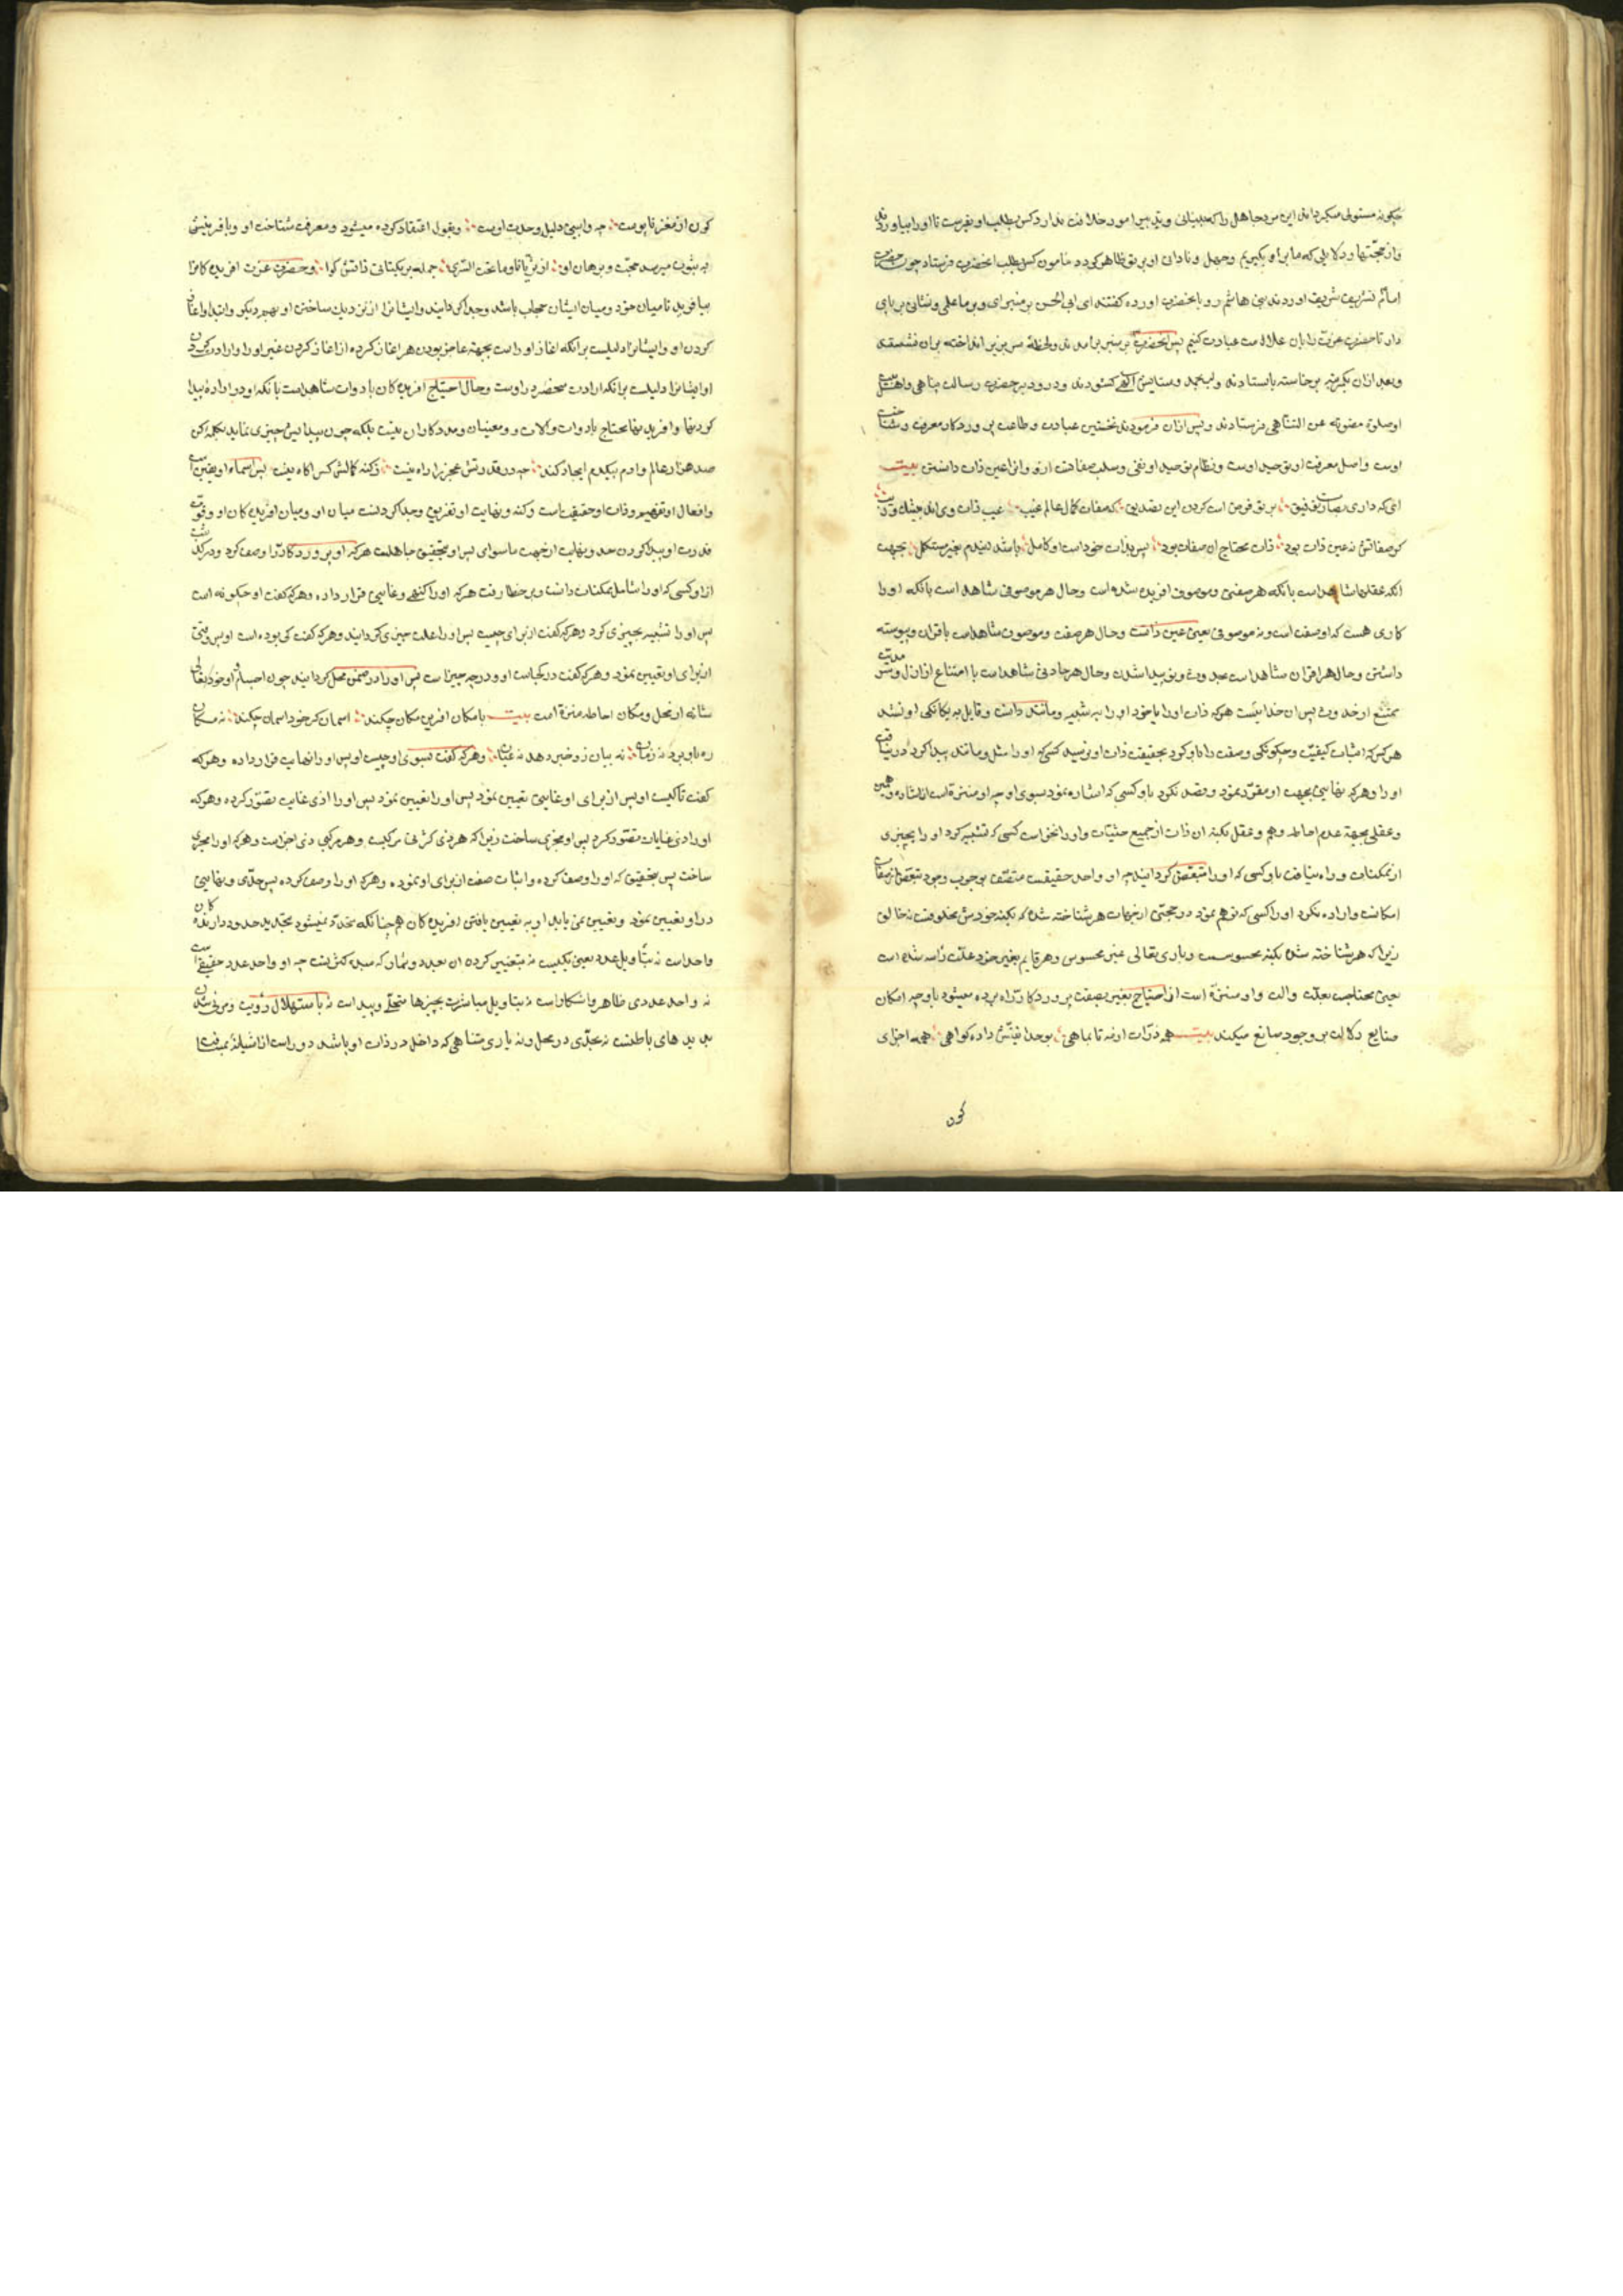 چگونه مستولی میگرداند این مرد جاهل را که بینائی و تدبیر امور خلافت ندارد کس بطلب او بفرست تا او را بیاورند
و از حجتها و دلایلی که ما بر او بگیریم و جهل و نادان او بر تو ظاهر گردد مامون کس بطلب انحضرت فرستاد چون حضرت
امام تشریف شریف اوردند بنی هاشم رو بانحضرت اورده گفتند ای ابی الحسن بر منبر ای و بر ما علمی و نشانی بر پای
دار تا حضرت عزت را بان علامت عبادت کنیم پس انحضرت بر منبر برامدند و لحظهٔ سر بزیر انداخته بران نشستند
و بعد ازان یکمرتبه برخاسته بایستادند و لب بحمد و ستایش الهی گشودند و درود بر حضرت رسالت پناهی و اهلبیت
او صلوة مصونه عن التناهی فرستادند و پس ازان فرمودند نخستین عبادت و طاعت پروردکار معرفت و شناخت
اوست و اصل معرفت او توحید اوست و نظام توحید او نفی و سلب صفات ازو و انرا عین ذات دانستن بیت
ای که داری بصارت توفیق بر تو فرض است کردن این تصدیق که صفات کمال عالم غیب عیب ذات وی اند بیشک و ریب
گر صفاتش نه عین ذات بود ذات محتاج ان صفات بود پس بذات خود است او کامل باشد نبودم بغیر مستکمل بجهت
انکه عقلها شاهداست بانکه هر صفتی و موصوف افریده شده است و حال هر موصوفی شاهد است بانکه او را
کاری هست که او صفت است و نه موصوفی یعنی عین ذاتست و حال هر صفت و موصوف شاهداست باقتران و پیوسته
داشتن و حال هر اقتران شاهداست بحدوث و نو پیدا شدن و حال هر حادثی شاهداست با امتناع از ازل و سرمدیت
ممتنع از حدوث پس ان خدا نیست هرکه ذات او را با خود او را به شبیه و مانند دانست و قایل به یکانکی او نشد
هرکس که اثبات کیفیت و چکونکی وصف را باو کرد بحقیقت ذات او نرسید کسی که او را مثل و مانند پیدا کرد درنیافت
او را و هرکه نهایتی بجهت او مقرر نمود و قصد نکرد باو کسی که اشاره نمود بسوی او چه او منزه است از اشاره وهمی
و عقلی بجهة عدم احاطه وهم و عقل بکنه ان ذات از جمیع حیثیات و او را نخواست کسی که تشبیه کرد او را بچیزی
از ممکنات و راه نیافت باو کسی که او را متبعض کردانید چه او واحد حقیقیست متصف بوجوب وجود متبعض از صفات
امکانست و اراده نکرد او را کسی که توهم نمود در جهتی از جهات هر شناخته شده که بکنه خودش مخلوقست نه خالق
زیرا که هر شناخته شده بکنه محسوسست و باری تعالی غیر محسوس و هر قایم بغیر خود علت زاده شده است
یعنی محتاجست بعلت و الت و او منزه است از احتیاج بغیر بصفت پروردکار راه برده میشود باو چه امکان
صنایع دلالت بر وجود صانع میکند بیت همه ذرات او مه تا بماهی بوحدانیتش داده کواهی همه اجزای
کون
کون از مغز تا پوست چه وا بینی دلیل وحدت اوست و بقول اعتقاد کرده میشود و معرفت شناخت او و بافرینش
به ثبوت میرسد حجت و برهان او از ثریا تا و ما تحت الثری جمله بر یکتائی ذاتش کوا و حضرت عزت افریده کانرا
بیافرید تا میان خود و میان ایشان حجاب باشد و جدا کرداند و ایشانرا از نزدیک ساختن او بهم دیگر و ابتدا و اغاز
کردن او و ایشانرا دلیلیست برانکه اغاز او راست بجهة عاجز بودن هر اغاز کرده از اغاز کردن غیر او را و ادات کردن
او ایشانرا دلیلیست برانکه ادات منحصر در اوست و حال احتیاج افریده کان بادوات شاهداست بانکه او در اراده پیدا
کردنها و افریدنها محتاج بادوات و آلات و و معینان و مددکاران نیست بلکه چون پیدایش چیزی نماید بکلمهٔ کن
صد هزار عالم و ادم بیکدم ایجاد کند چه در قدرتش عجز را راه نیست ز کنه کمالش کس اکاه نیست پس اسماء او تعین است
و افعال او تفهیم و ذات او حقیقت است و کنه و نهایت او تفریق و جدا کردنست میان او و میان افریده کان او و قوت
قدرت او پیدا کردن حد و نهایت از جهت ماسوای پس او بتحقیق جاهلست هرکه او پروردکار را وصف کرد و درگذشت
از او کسی که او را شامل ممکنات دانست و بر خطا رفت هرکه او را کنهی و غایتی قرار داده و هرکه گفت او چگونه است
پس او را تشبیه بچیزی کرد و هرکه گفت از برای چیست پس او را علت چیزی کردانید و هرکه گفت کی بوده است او پس وقتی
از برای او تعیین نمود و هرکه گفت در کجاست او و در چه چیز است پس او را در ضمن محل کردانید چون اجسام او خود تعالی
شانه از محل و مکان احاطه منزه است بیت با مکان افرین مکان چکند اسمان گر خود اسمان چکند نه مکان
ره باو برد نه زمان نه بیان زو خبر دهد نه عیان و هرکه گفت بسوی او چیست او پس او را نهایت قرار داده و هرکه
گفت تا کیست او پس از برای او غایتی تعیین نمود پس او را تعیین نمود پس او را ذی غایت تصور کرده و هرکه
او را ذی غایات متصور کرد پس او متجزی ساخت زیرا که هر ذی کثرتی مرکبست و هر مرکبی ذی اجزاست و هرکه او را مجزی
ساخت پس بتحقیق که او را وصف کرده و اثبات صفت از برای او نموده و هرکه او را وصف کرده پس حدی و نهایتی
در او تعیین نمود و تعیین نمی یابد او به تعیین یافتن افریده کان همچنانکه محدود نمیشود بتحدید حدود دارنده کان
واحداست نه بتاویل عدد یعنی یکیست نه بتعیین کرده ان بعدد و شمار که مبدء کثرتست چه او واحد عدد حقیقی است
نه واحد عددی ظاهر و اشکار است نه بتاویل مباشرت بچیزها متجلی و پیداست نه باستهلال رؤیت و مرئی شدن
بدیدهای باطنست نه بجدی در محل و نه یاری متناهی که داخل در ذات او باشد دور است از اشیا نه بمسافت